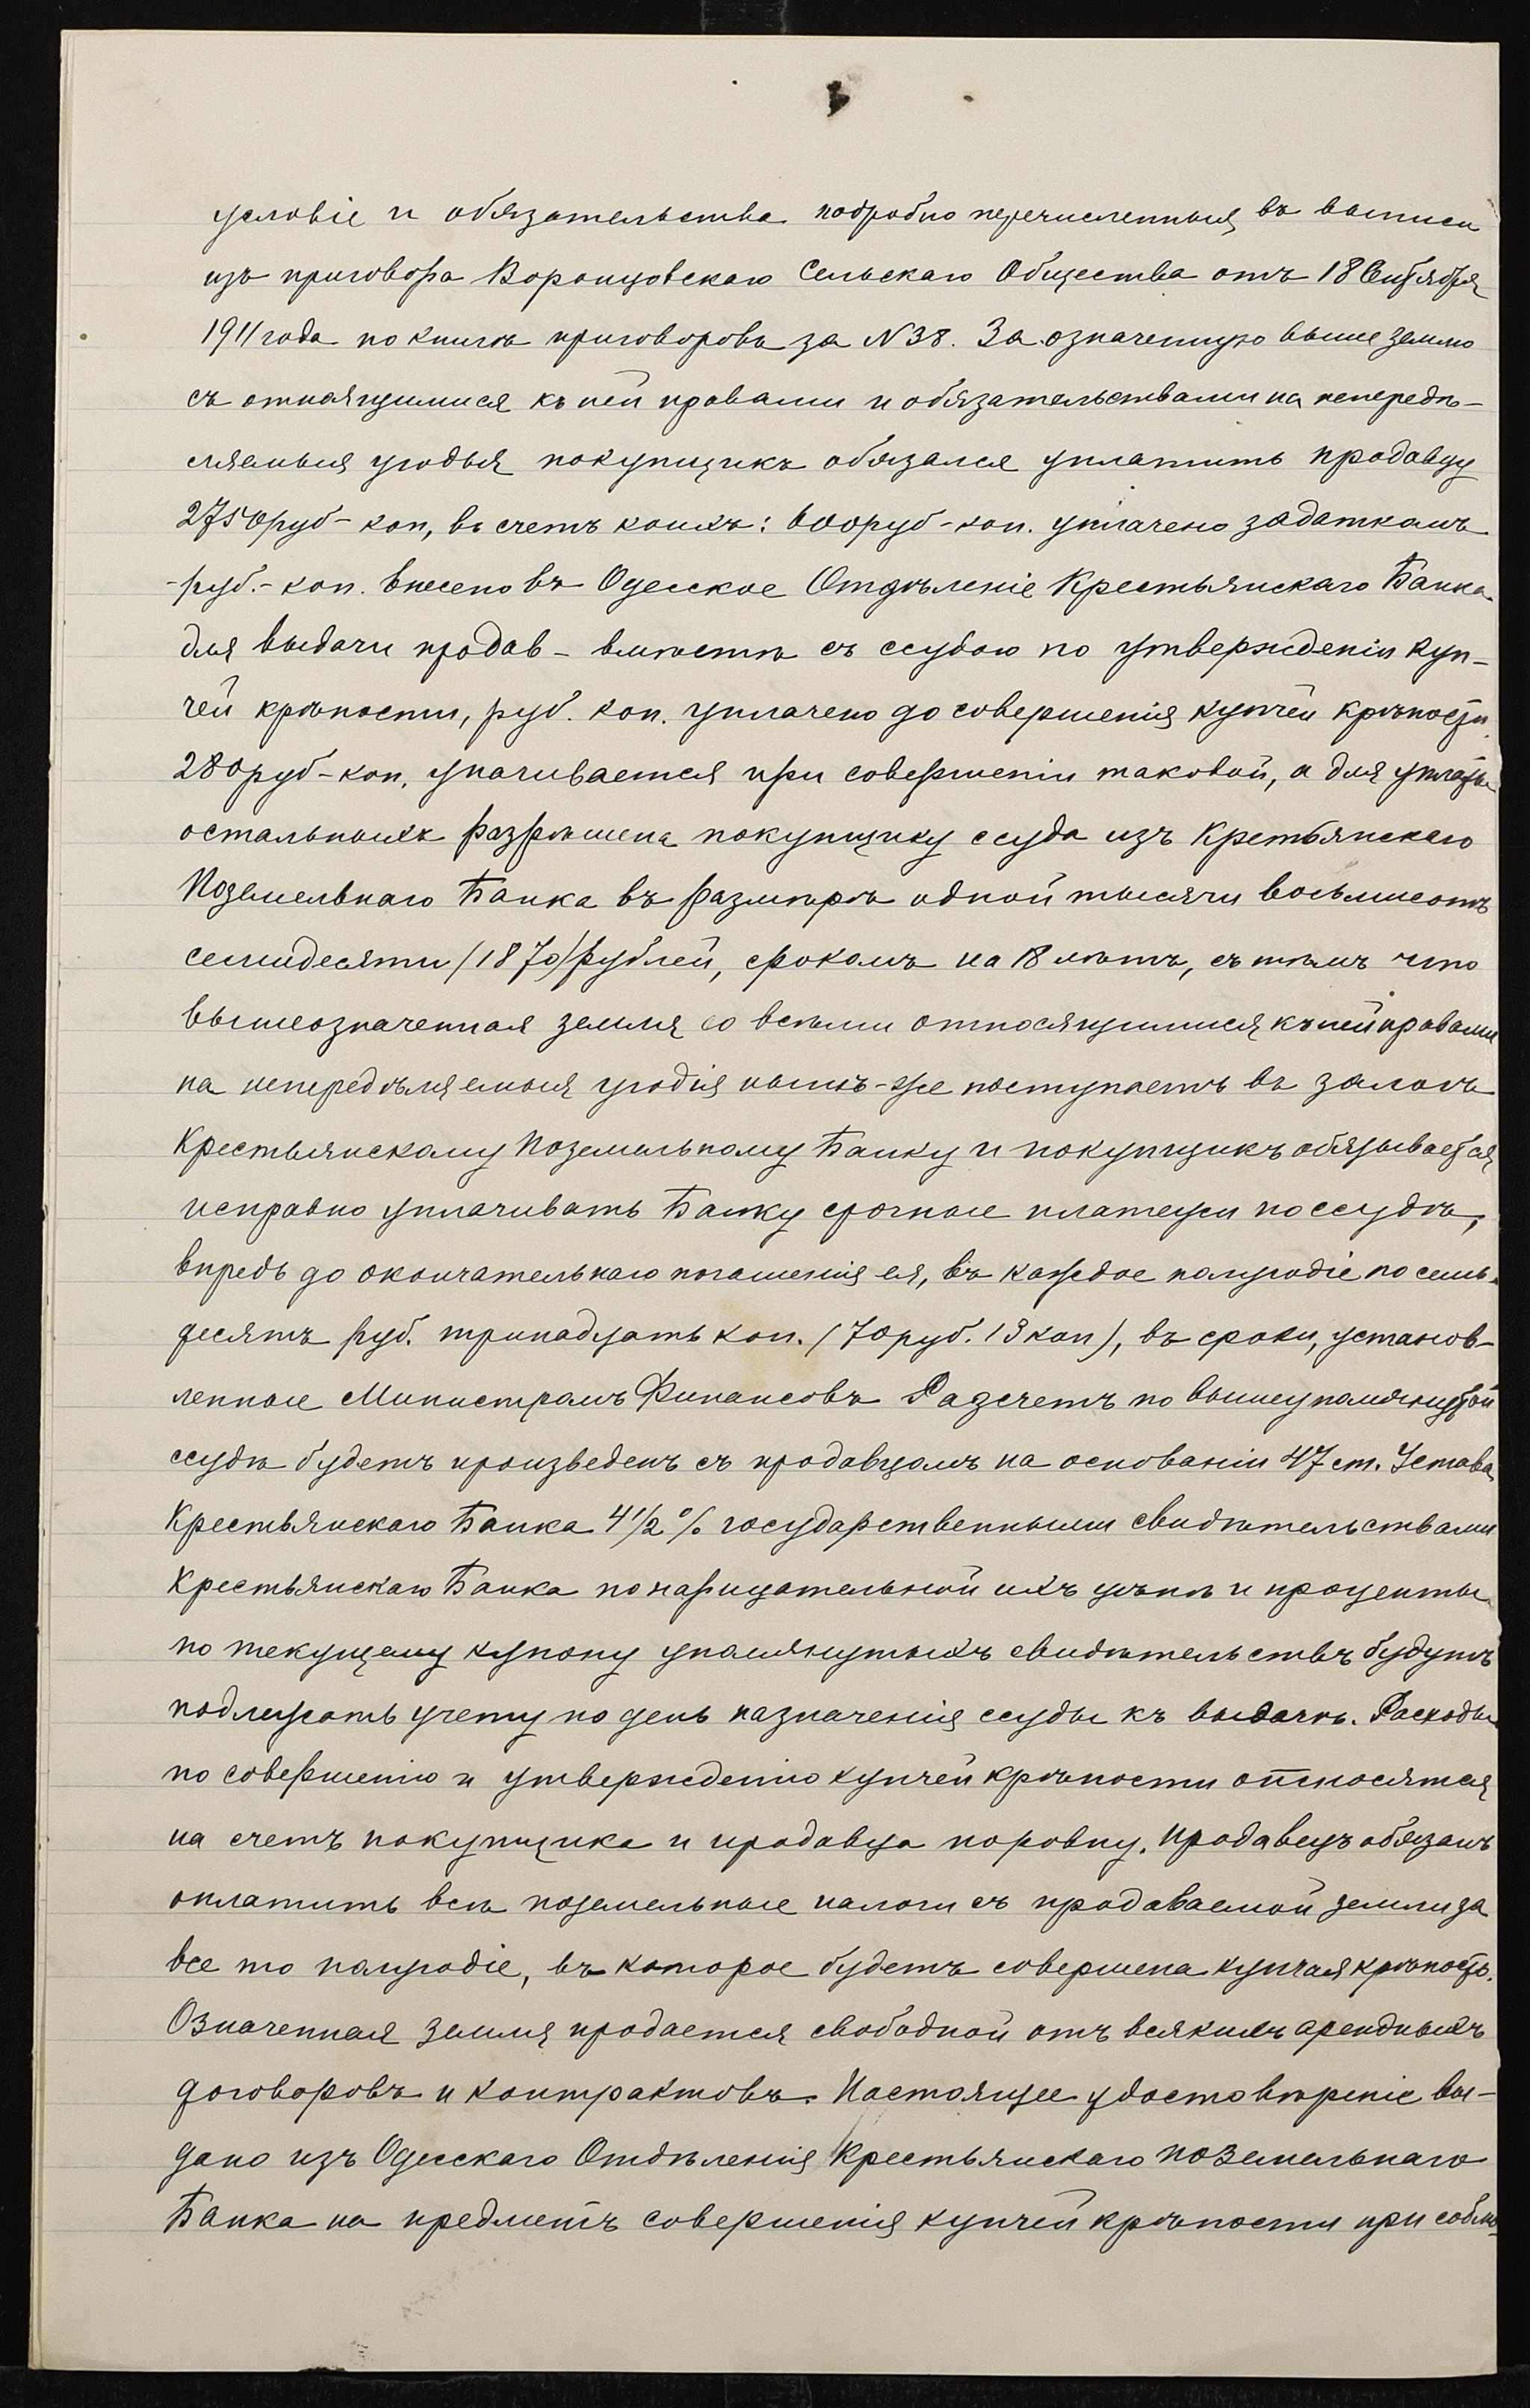 условіе и обязательства подробно перечисленныя въ выписи
изъ приговора Воронцовскаго Сельскаго Общества отъ 18 Сентября
1911 года по книгѣ приговоровъ за N 38. За означенную выше землю
съ относящимися къ ней правами и обязательствами на непередѣ-
ляемыя угодья покупщикъ обязался уплатить продавцу
2750 руб - коп, въ счетъ коихъ: 600 руб - коп. уплачено задаткомъ
- руб. - коп. внесено въ Одесское Отдѣленіе Крестьянскаго Банка
для выдачи продав - вмѣстѣ съ ссудою по утвержденіи куп-
чей крѣпости, руб. коп. уплачено до совершенія купчей крѣпости,
280 руб - коп. уплачивается при совершеніи таковой, а для уплаты
остальныхъ разрѣшена покупщику ссуда изъ Крестьянскаго
Поземельнаго Банка въ размѣрѣ одной тысячи восьмисотъ
семидесяти /1870/ рублей, срокомъ на 18 лѣтъ, съ тѣмъ что
вышеозначенная земля со всѣми относящимися къ ней правами
на непередѣляемыя угодія нынѣ-же поступаетъ въ залогъ
Крестьянскому Поземельному Банку и покупщикъ обязывается
исправно уплачивать Банку срочные платежи по ссудѣ,
впредь до окончательнаго погашенія ея, въ каждое полугодіе по семь-
десятъ руб. тринадцать коп. (70 руб. 13 коп), въ сроки, установ-
ленные Министромъ Финансовъ Разсчетъ по вышеупомянутой
ссудѣ будетъ произведенъ съ продавцомъ на основаніи 47 ст. Устава
Крестьянскаго Банка 4 1/2 % государственными свидѣтельствами
Крестьянскаго Банка по нарицательной ихъ цѣнѣ и проценты
по текущему купону упомянутыхъ свидѣтельствъ будутъ
подлежать учету по день назначенія ссуды къ выдачѣ. Расходы
по совершенію и утвержденію купчей крѣпости относятся
на счетъ покупщика и продавца поровну. Продавецъ обязанъ
оплатить всѣ поземельные налоги съ продаваемой земли за
все то полугодіе, въ которое будетъ совершена купчая крѣпость.
Означенная земля продается свободной отъ всякихъ арендныхъ
договоровъ и контрактовъ. Настоящее удостовѣреніе вы-
дано изъ Одесскаго Отдѣленія Крестьянскаго Поземельнаго
Банка на предметъ совершенія купчей крѣпости при соблю-